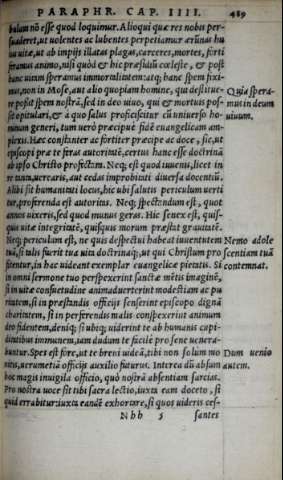 PARAPHR. CAP. IIII. 489
bulam nõ esse quod loquimur. Alioqui quæ res nobis per-
suaderet, ut uolentes ac lubentes perpetiamur ærũnas hu
ius uitæ, ut ab impijs illatas plagas, carceres, mortes, forti
feramus animo, nisi quòd & hic præsidiũ cœleste, & post
hanc uitam speramus immortalitatem: atq; hanc spem fixi-
mus, non in Mose, aut alio quopiam homine, qui destitue-
re possit spem nostrã, sed in deo uiuo, qui & mortuis pos-
sit opitulari, & a quo salus proficiscitur cũ uniuerso ho-
minum generi, tum uerò præcipuè fidē euangelicam am-
plexis. Hæc constanter ac fortiter præcipe ac doce, sic, ut
episcopi præ te feras autoritatē, certus hanc esse doctrinã
ab ipso Christo profectam. Neq; est quod iuuenis, licet in
re tanta, uercaris, aut cedas improbitati diuersa docentiũ.
Alibi sit humanitati locus, hic ubi salutis periculum uerti
tur, proferenda est autoritas. Neq; spectandum est, quot
annos uixeris, sed quod munus geras. Hic senex est, quis-
quis uitæ integritatē, quisquis morum præstat grauitatē.
Neq; periculum est, ne quis despectui habeat iuuentutem
tuã, si talis fuerit tua uita doctrinaq;, ut qui Christum pro
fitentur, in hac uideant exemplar euangelicæ pietatis. Si
in omni sermone tuo perspexerint sanctæ mētis imaginē,
si in uitæ consuetudine animaduerterint modestiam ac pu
ritatem, si in præstandis officijs senserint episcopo dignã
charitatem, si in perferendis malis conspexerint animum
deo fidentem, deniq; si ubiq; uiderint te ab humanis cupi-
ditatibus immunem, iam dudum te facilè pro sene uenera-
buntur. Spes est fore, ut te breui uideã, tibi non solum mo
nitis, uerumetiã officijs auxilio futurus. Interea dũ absum
hoc magis inuigila officio, quò nostrã absentiam sarcias.
Pro nostra uoce sit tibi sacra lectio, iuxta eam doceto, si
quid errabitur: iuxta eandē exhortare, si quos uideris ces-
Nhh 5 santes
Quia spera-
mus in deum
uiuum.
Nemo adole
scentiam tuã
contemnat.
Dum uenio
autem.